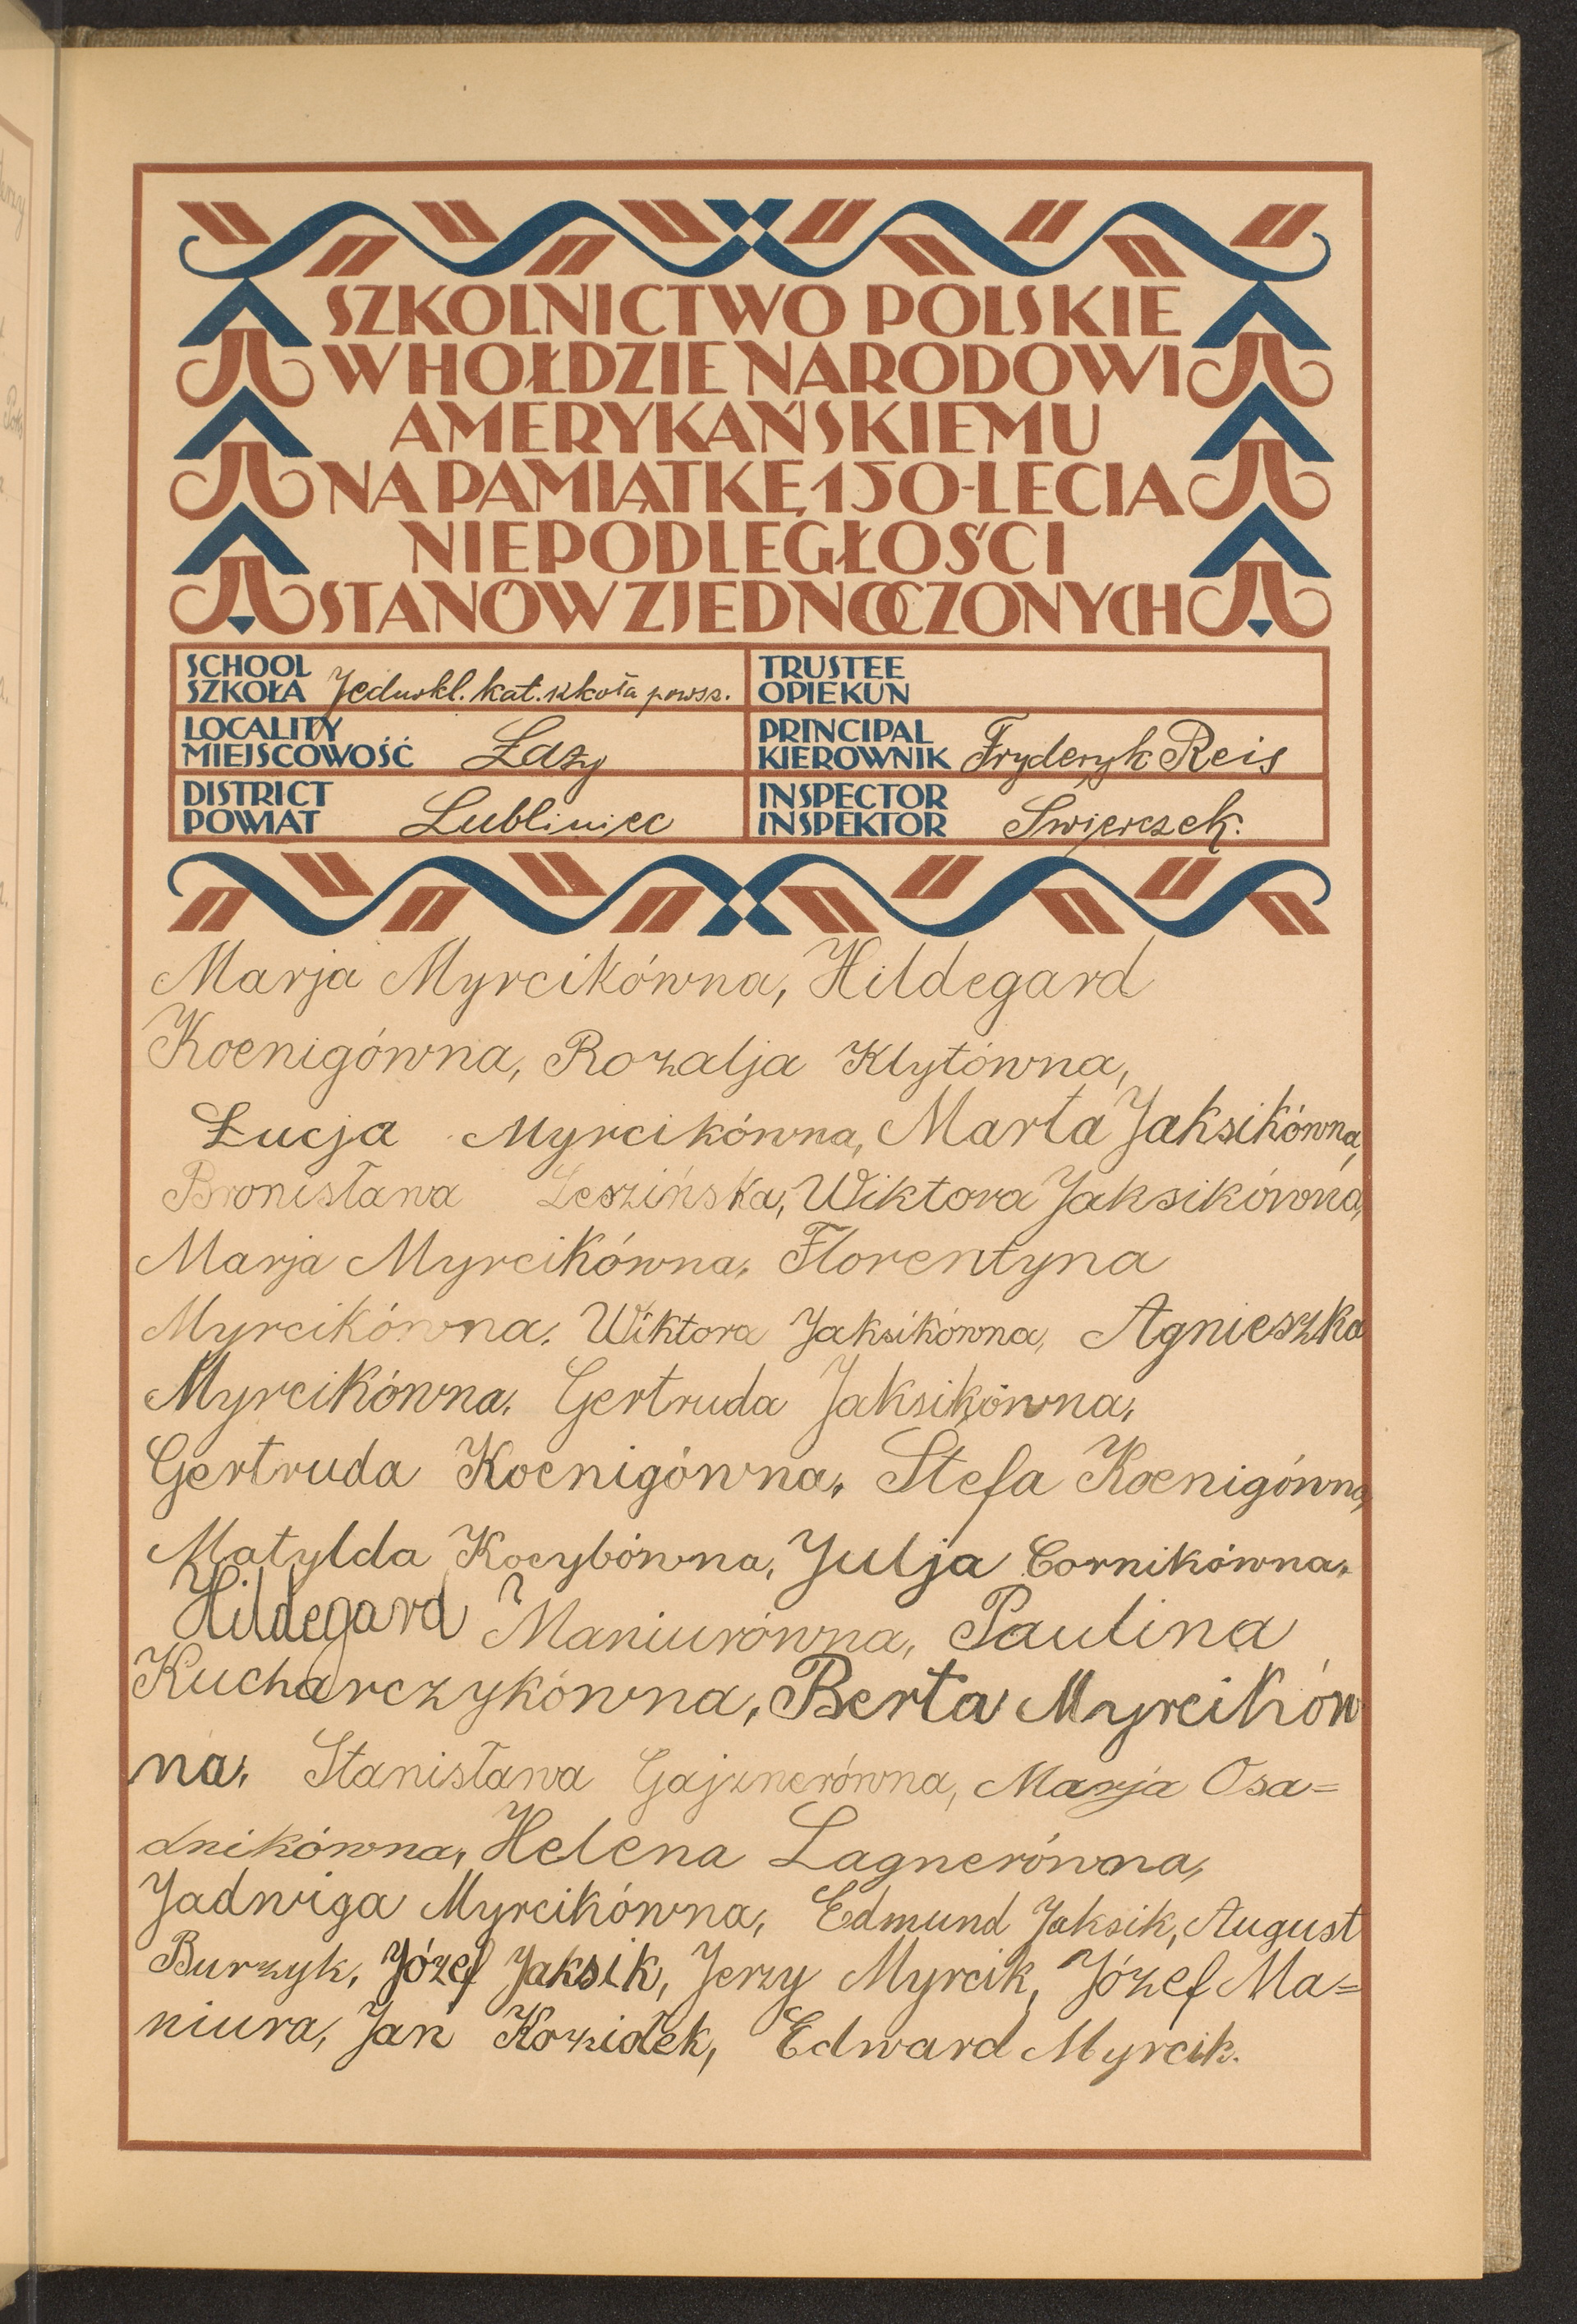 SZKOLNICTWO POLSKIE
W HOŁDZIE NARODOWI
AMERYKAŃSKIEMU
NA PAMIĄTKĘ 150-LECIA
NIEPODLEGŁOŚCI
STANÓW ZJEDNOCZONYCH
SCHOOL
SZKOŁA Jednokl. kat. szkoła powsz.
TRUSTEE
OPIEKUN
LOCALITY
MIEJSCOWOŚĆ Łazy
PRINCIPAL
KIEROWNIK Fryderyk Reis
DISTRICT
POWIAT Lubliniec
INSPECTOR
INSPEKTOR Świerczek.
Marja Myrcikówna, Hildegard
Koenigówna, Rozalja Klytówna,
Łucja Myrcikówna, Marta Jaksikówna,
Bronisława Leszińska, Wiktora Jaksikówna,
Marja Myrcikówna, Florentyna
Myrcikówna, Wiktora Jaksikówna, Agnieszka
Myrcikówna, Gertruda Jaksikówna,
Gertruda Koenigówna, Stefa Koenigówna,
Matylda Kocybówna, Julja Cornikówna,
Hildegard Maniurówna, Paulina
Kucharczykówna, Berta Myrcików
na, Stanisława Gajznerówna, Marja Osa=
dnikówna, Helena Lagnerówna,
Jadwiga Myrcikówna, Edmund Jaksik, August
Burzyk, Józef Jaksik, Jerzy Myrcik, Józef Ma=
niura, Jan Koziołek, Edward Myrcik.